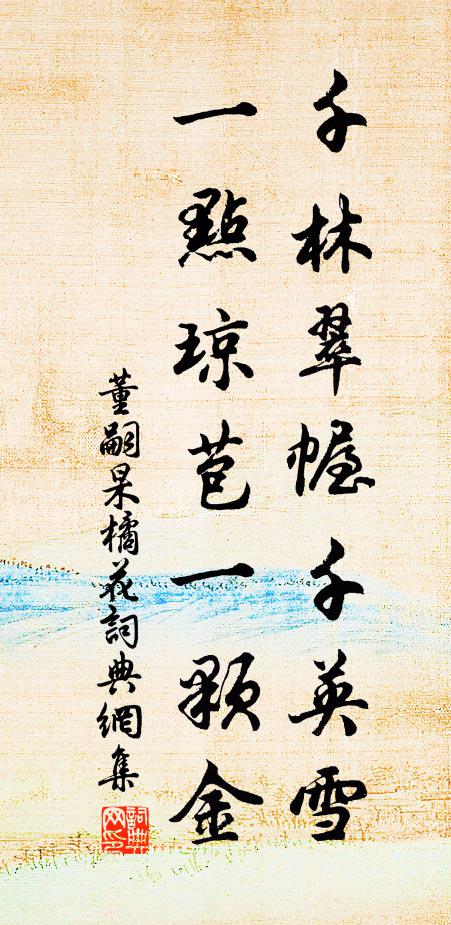 千林翠幄千英雪
一點琼苞一顆金
董嗣杲橘花詞典網集
詞典網印